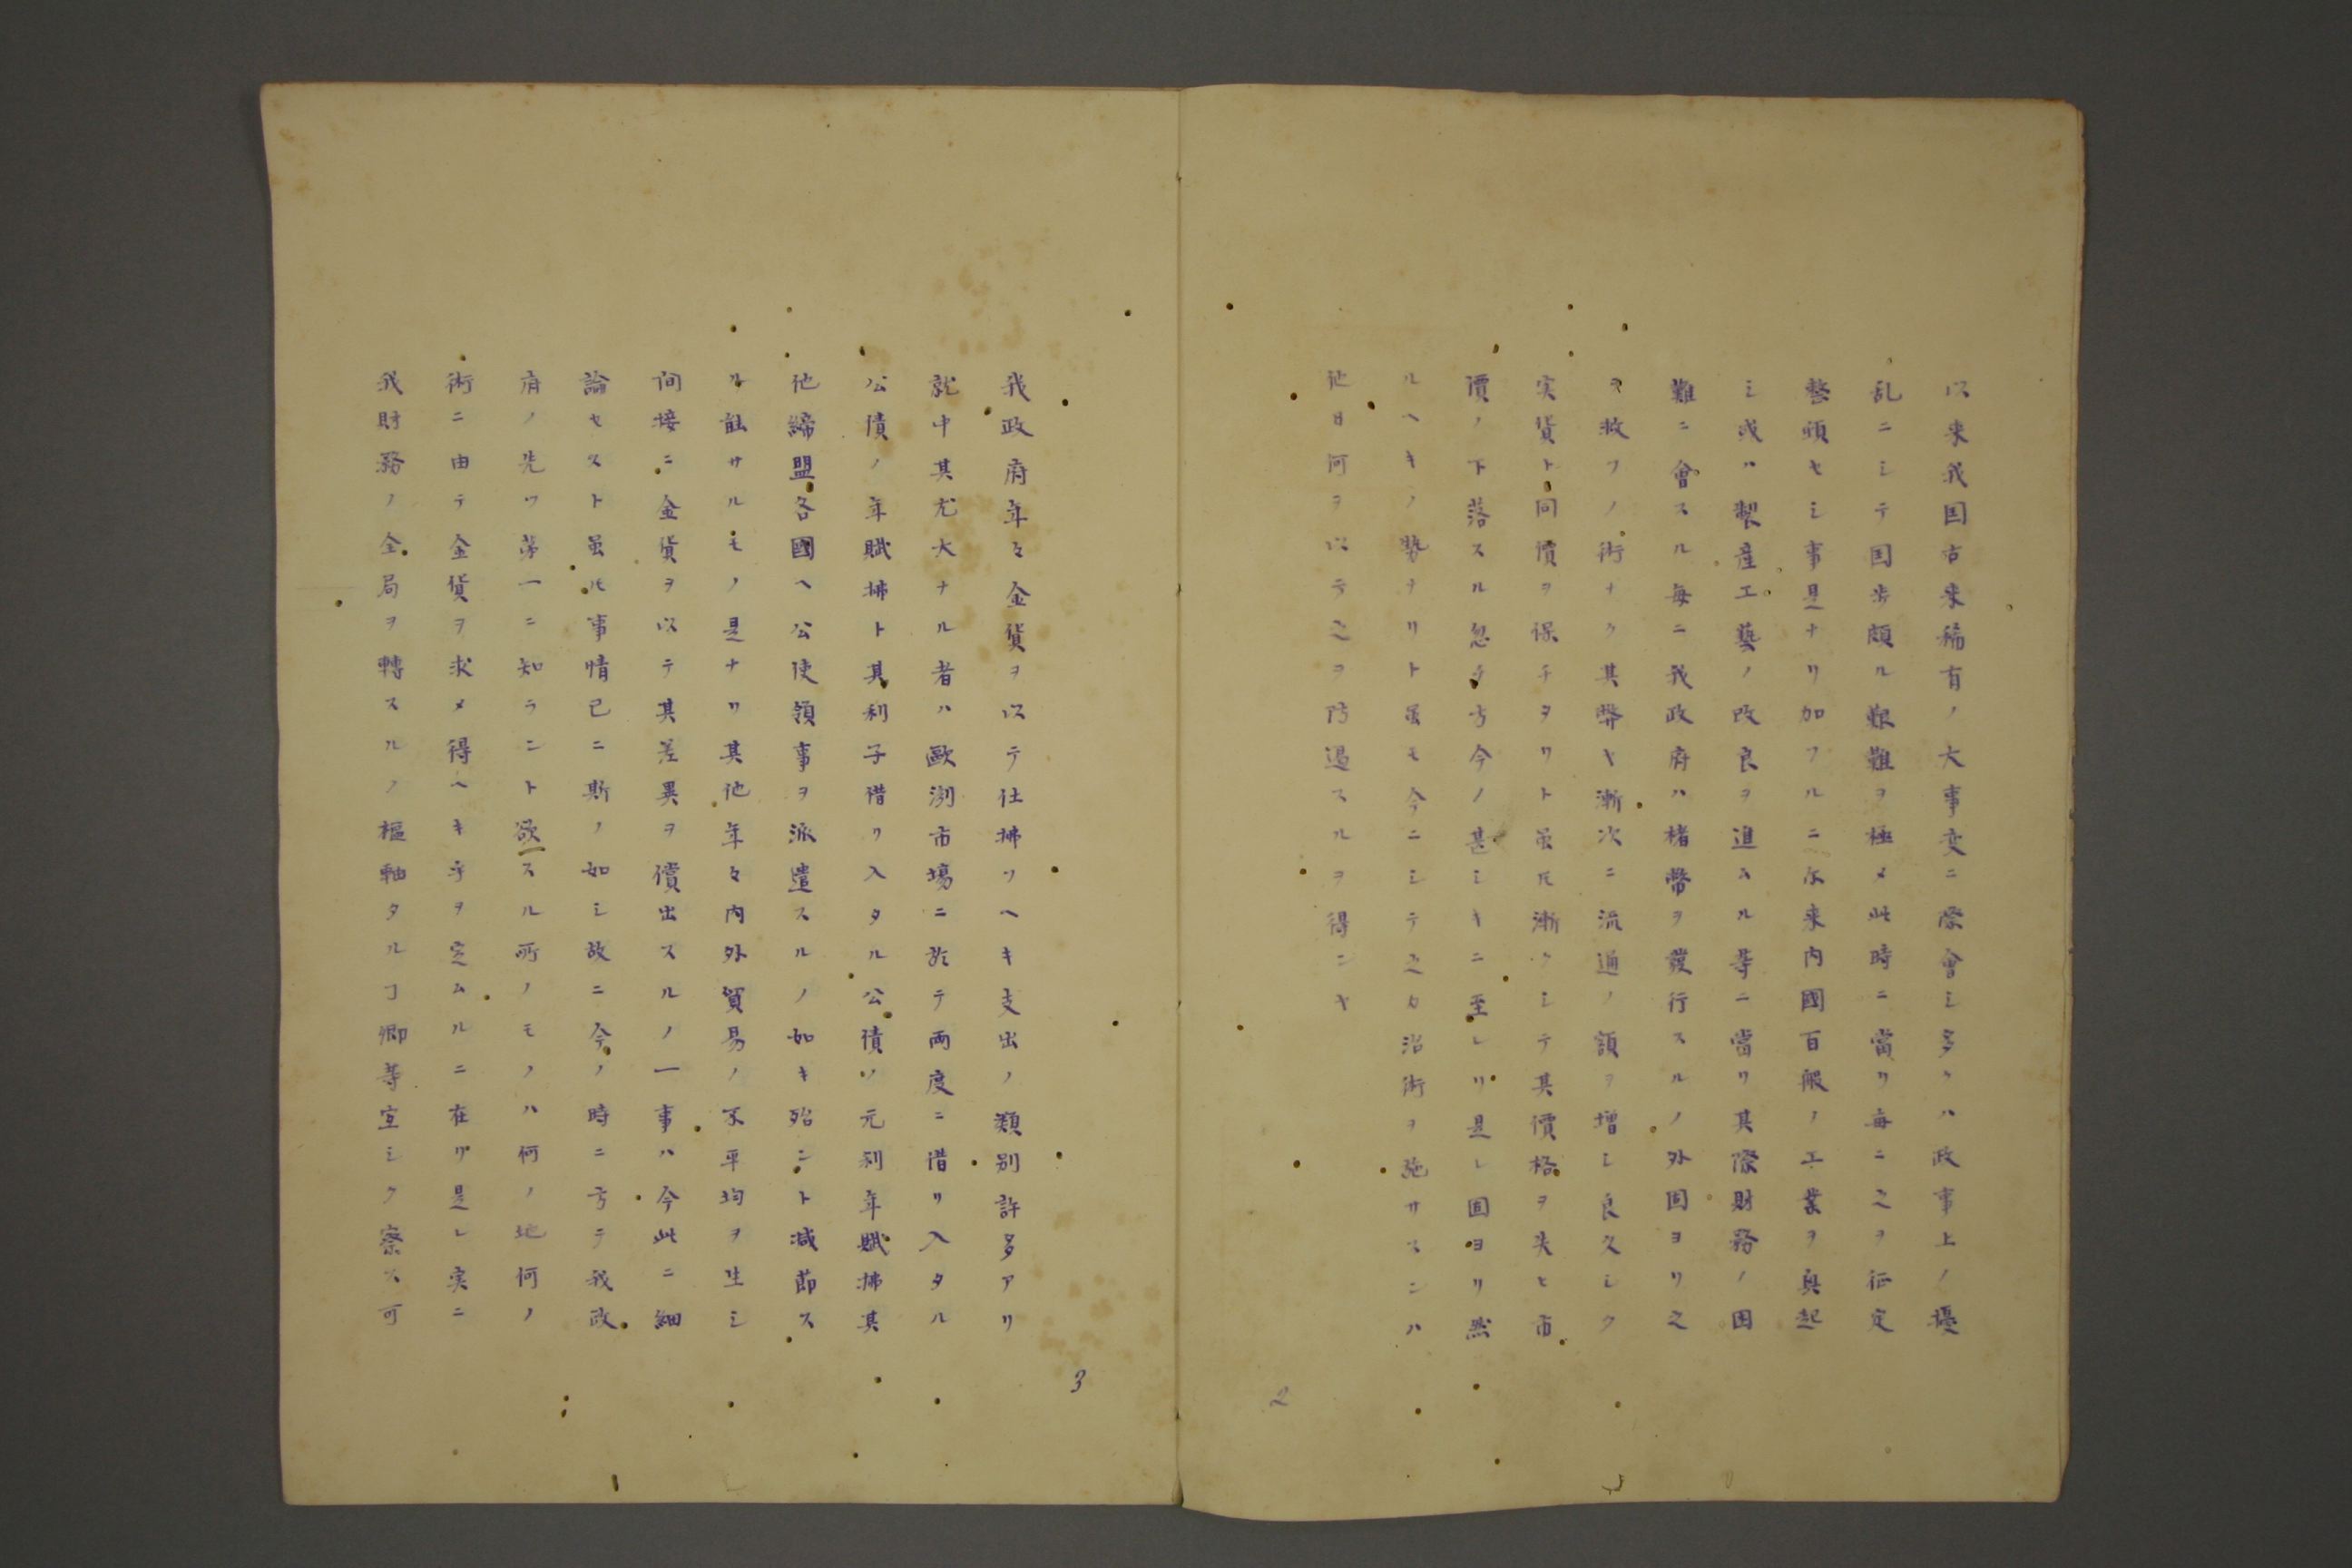 以来我国古来稀有ノ大事変ニ際會シ多クハ政事上ノ擾
乱ニシテ国歩頗ル艱難ヲ極メ此時ニ當リ毎ニ之ヲ征定
整頓セシ事是ナリ加フルニ尓来内國百般ノ工業ヲ興起
シ或ハ製産工藝ノ改良ヲ進ムル等ニ當リ其際財務ノ困
難ニ會スル毎ニ我政府ハ楮幣ヲ發行スルノ外固ヨリ之
ヲ救フノ術ナク其弊ヤ漸次ニ流通ノ額ヲ増シ良久シク
実貨ト同價ヲ保チヲリト虽𪜈漸クシテ其價格ヲ失ヒ市
價ノ下落スル忽チ方今ノ甚シキニ至レリ是レ固ヨリ然
ルヘキノ勢ヲリト虽モ今ニシテ之カ治術ヲ施サスンハ
他日何ヲ以テ之ヲ防遏スルヲ得ンヤ
2
我政府年々金貨ヲ以テ仕拂ツヘキ支出ノ類別許多アリ
就中其尤大ナル者ハ歐洲市場ニ於テ両度ニ借リ入タル
公債ノ年賦拂ト其利子借リ入タル公債ノ元利年賦拂其
他締盟各國ヘ公使領事ヲ派遣スルノ如キ殆ント減節ス
ル能サルモノ是ナリ其他年々内外貿易ノ不平均ヲ生シ
间接ニ金貨ヲ以テ其差異ヲ償出スルノ一事ハ今此ニ細
論セスト虽𪜈事情已ニ斯ノ如シ故ニ今ノ時ニ方テ我政
府ノ先ツ第一ニ知ランと欲スル所ノモノハ何ノ地何ノ
術ニ由テ金貨ヲ求メ得ヘキ乎ヲ定ムルニ在リ是レ実ニ
我財務ノ全局ヲ轉スルノ樞軸タルヿ卿等宜シク察ス可
3